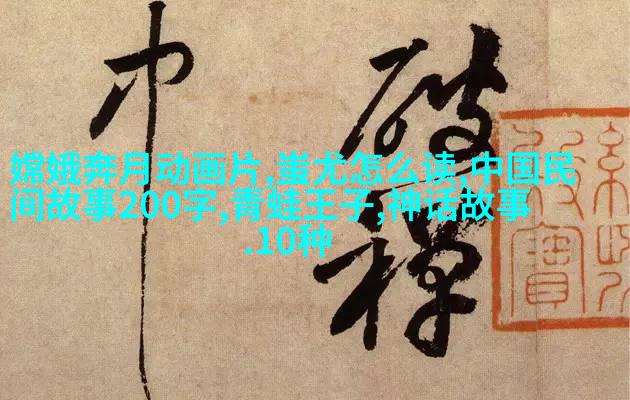 嫦娥奔月动画片,蚩尤怎么读,中国民
间故事200字,青蛙王子,神话故事
.10种
破
中